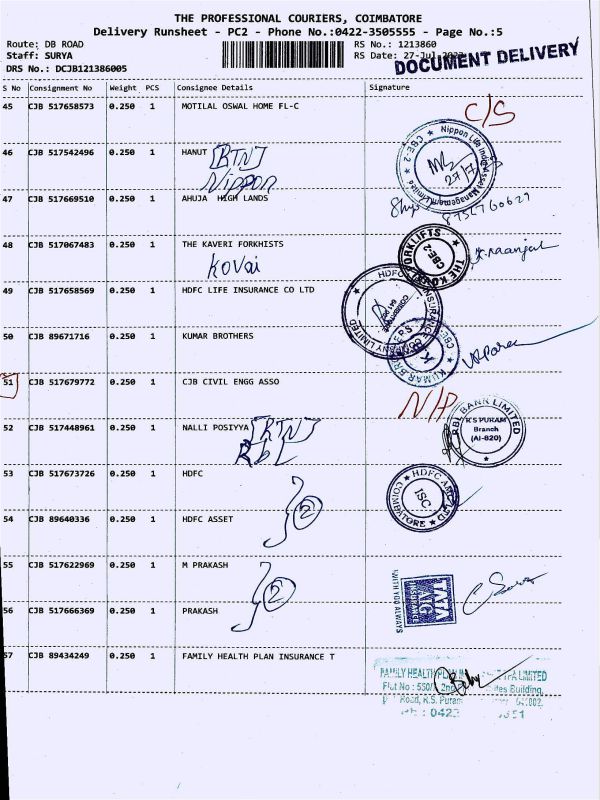 THE PROFESSIONAL COURIERS, COIMBATORE
Delivery Runsheet - PC2 - Phone No.:0422-3505555 - Page No.:5
Route: DB ROAD
Staff: SURYA
DRS No.: DCJB121386005
RS No.: 1213860
RS Date: 27-Jul
DOCUMENT DELIVERY
S No Consignment No Weight PCS Consignee Details Signature
45 CJB 517658573 0.250 1 MOTILAL OSWAL HOME FL-C C/S
46 CJB 517542496 0.250 1 HANUT [RTN]
Nippon
Nippon Life India Asset Management Limited
CBE-2
27/7
47 CJB 517669510 0.250 1 AHUJA HIGH LANDS
48 CJB 517067483 0.250 1 THE KAVERI FORKHISTS
Kovai
THE KOVAI FORKLIFTS
CBE-2
49 CJB 517658569 0.250 1 HDFC LIFE INSURANCE CO LTD
50 CJB 89671716 0.250 1 KUMAR BROTHERS
KUMAR BROTHERS
51 CJB 517679772 0.250 1 CJB CIVIL ENGG ASSO N/P
52 CJB 517448961 0.250 1 NALLI POSIYYA [RTN]
Rbl
RBL BANK LIMITED
K S PURAM
Branch
(AI-820)
53 CJB 517673726 0.250 1 HDFC
HDFC
COIMBATORE
ISC
54 CJB 89640336 0.250 1 HDFC ASSET
2
55 CJB 517622969 0.250 1 M PRAKASH
2
TATA
AIG
INSURANCE
WITH YOU ALWAYS
56 CJB 517666369 0.250 1 PRAKASH
57 CJB 89434249 0.250 1 FAMILY HEALTH PLAN INSURANCE T
FAMILY HEALTH PLAN TPA LIMITED
Flat No : 550/ 2nd Building,
Road, K.S. Puram
Ph : 0422